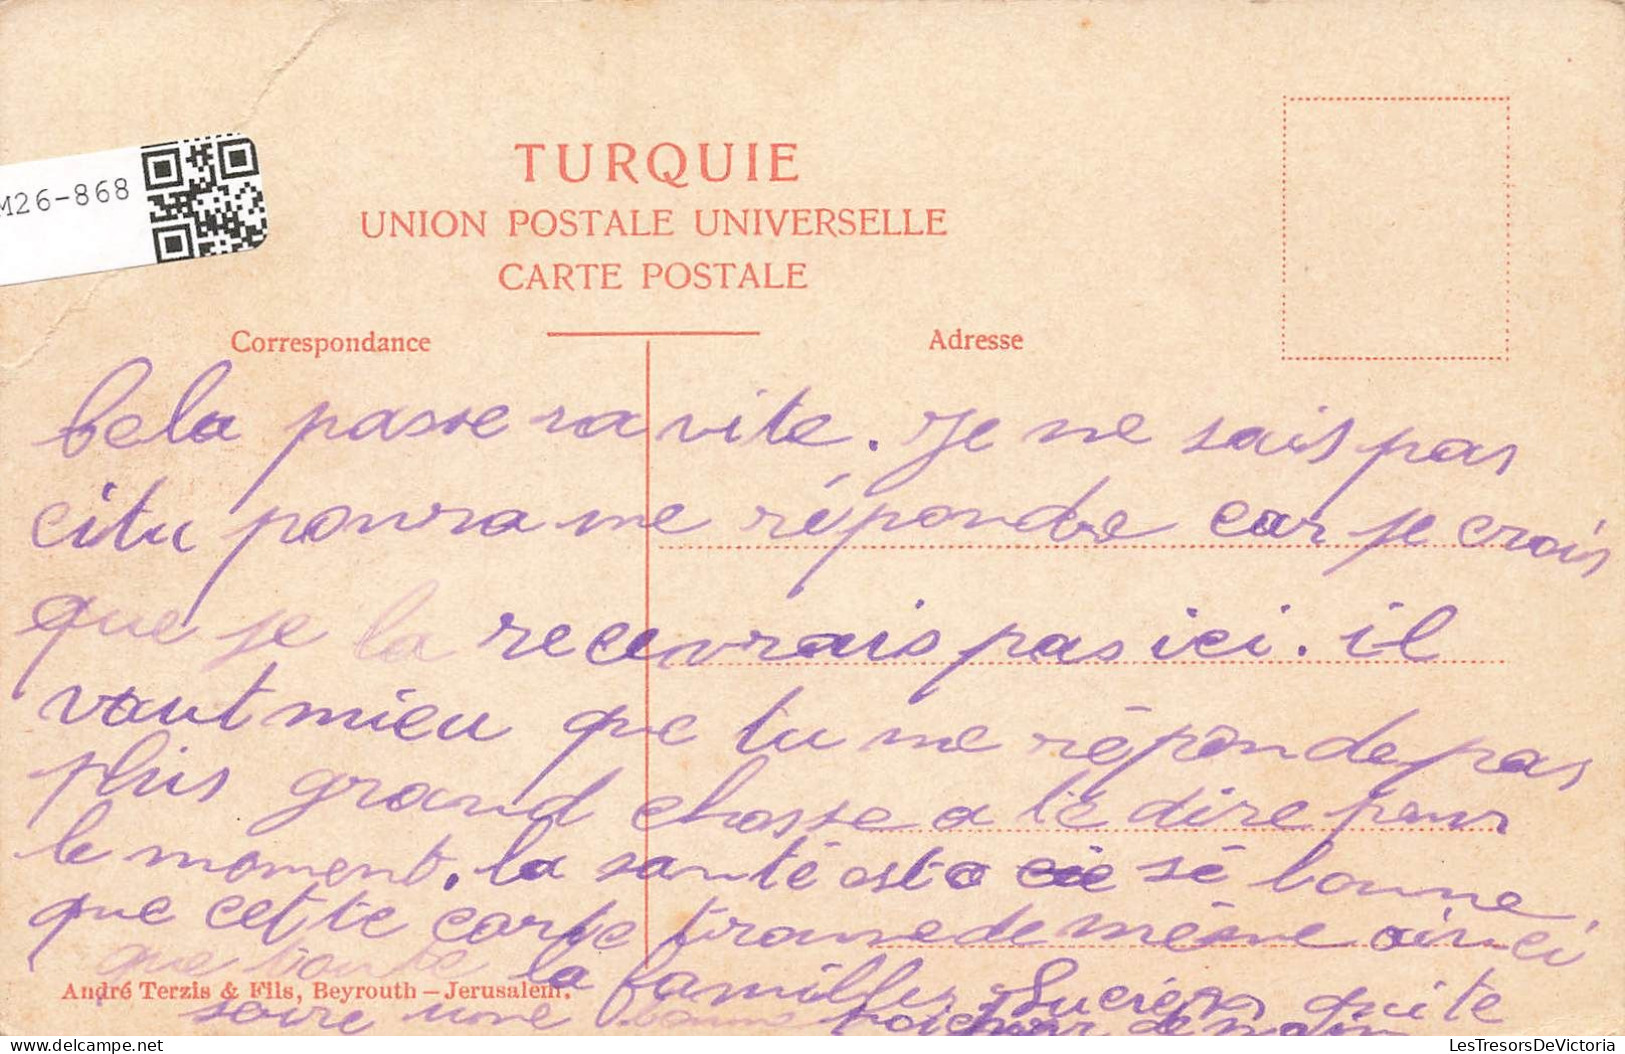 M26-868
TURQUIE
UNION POSTALE UNIVERSELLE
CARTE POSTALE
Correspondance
Adresse
Cela passera vite. Je ne sais pas
citu pourra me répondre car je crois
que je la recevrais pas ici. il
vaut mieu que tu me réponde pas
plus grand chosse a te dire pour
le moment. la santé est a sé bonne
que cette carte trouve de même ainci
que toute la famille Lucien quite
André Terzis & Fils, Beyrouth – Jerusalem.
soire une demain
delcampe.net
LesTresorsDeVictoria